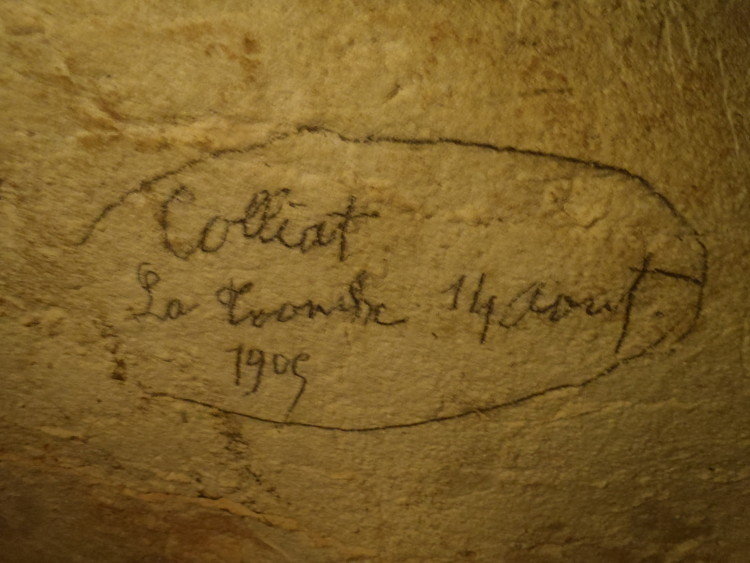 Colliat
La Tronche 14 Aout
1905